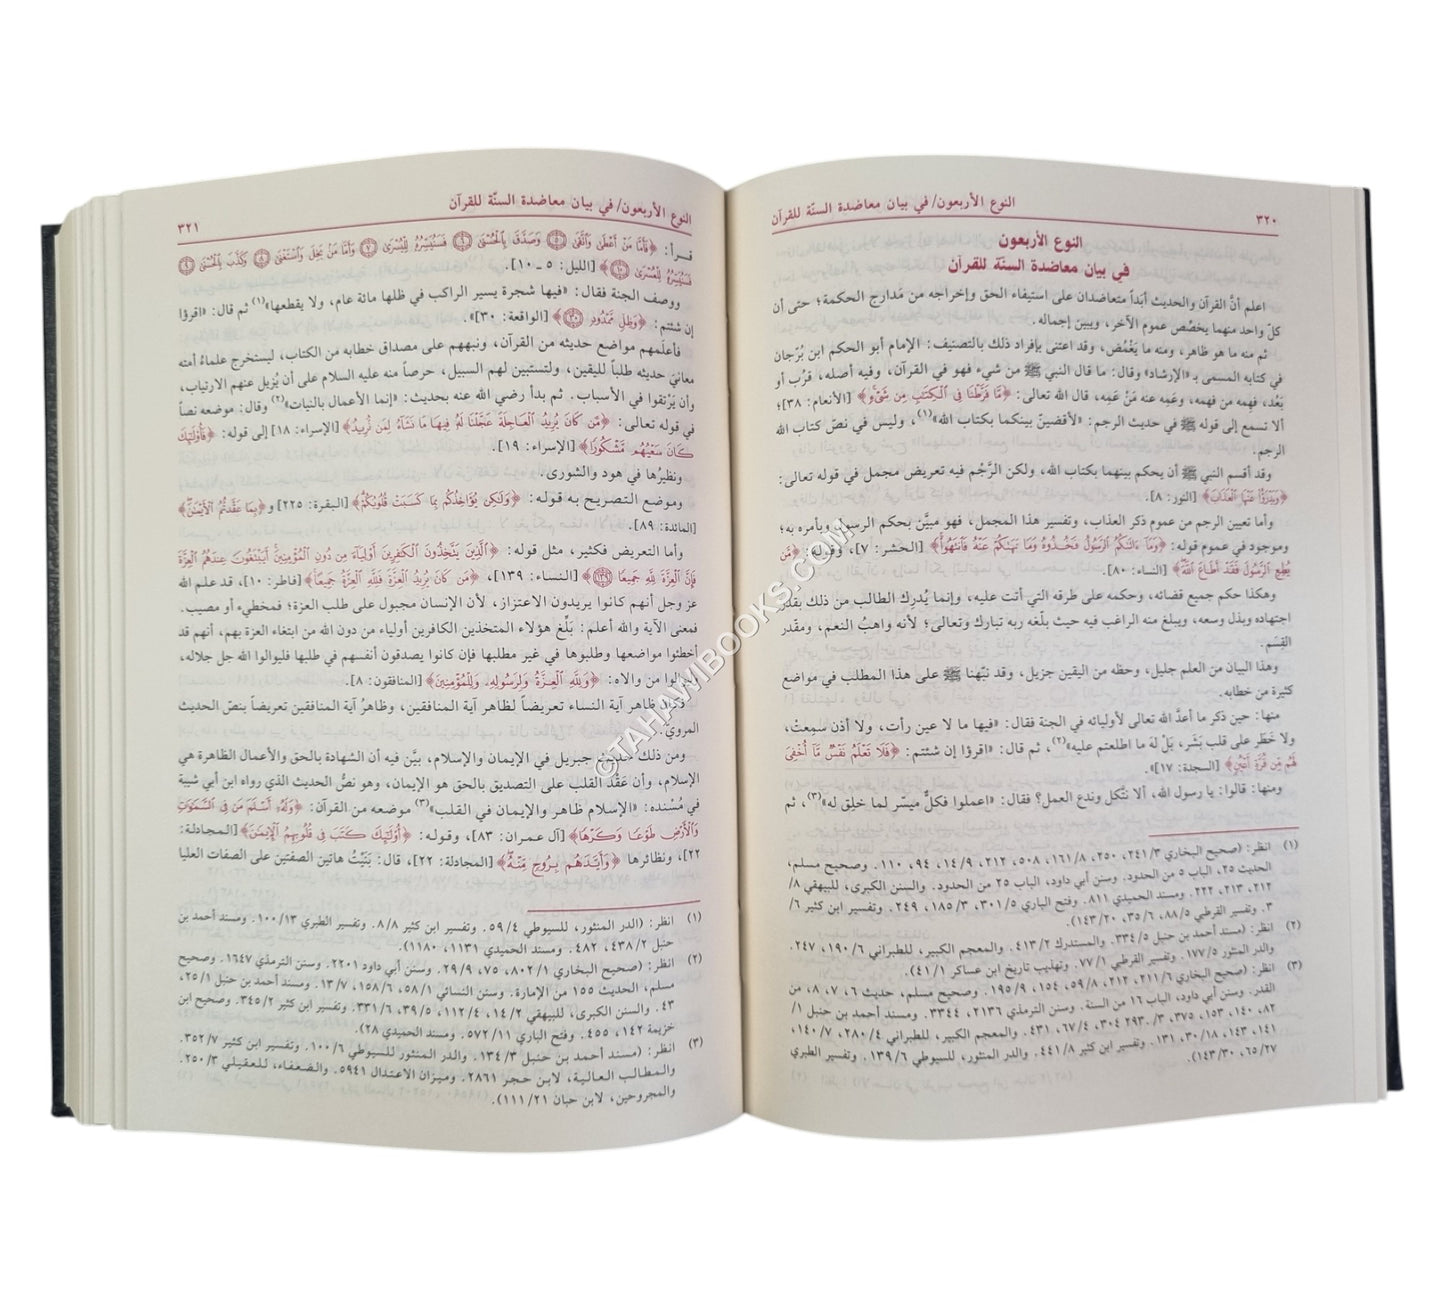 ٣٢٠ النوع الأربعون/ في بيان معاضدة السنّة للقرآن
النوع الأربعون
في بيان معاضدة السنّة للقرآن
اعلم أنَّ القرآن والحديث أبَداً متعاضدان على استيفاء الحق وإخراجه من مَدارج الحكمة؛ حتى أن
كلّ واحد منهما يخصّص عموم الآخر، ويبين إجماله.
ثم منه ما هو ظاهر، ومنه ما يَغْمُض، وقد اعتنى بإفراد ذلك بالتصنيف: الإمام أبو الحكم ابن بُرَّجان
في كتابه المسمى بـ «الإرشاد» وقال: ما قال النبي ﷺ من شيء فهو في القرآن، وفيه أصله، قرُب أو
بَعُد، فهِمه من فهمه، وعَمِه عنه مَنْ عَمِه، قال الله تعالى: ﴿مَّا فَرَّطْنَا فِي الْكِتَٰبِ مِن شَيْءٍ﴾ [الأنعام: ٣٨]؛
ألا تسمع إلى قوله ﷺ في حديث الرجم: «لأقضينّ بينكما بكتاب الله»(١)، وليس في نصّ كتاب الله
الرجم.
وقد أقسم النبي ﷺ أن يحكم بينهما بكتاب الله، ولكن الرَّجْم فيه تعريض مجمل في قوله تعالى:
﴿وَيَدْرَؤُا عَنْهَا الْعَذَابَ﴾ [النور: ٨].
وأما تعيين الرجم من عموم ذكر العذاب، وتفسير هذا المجمل، فهو مبيَّن بحكم الرسول وبأمره به؛
وموجود في عموم قوله: ﴿وَمَا ءَاتَىٰكُمُ الرَّسُولُ فَخُذُوهُ وَمَا نَهَىٰكُمْ عَنْهُ فَانتَهُوا﴾ [الحشر: ٧]، وقوله: ﴿مَّن
يُطِعِ الرَّسُولَ فَقَدْ أَطَاعَ اللَّهَ﴾ [النساء: ٨٠].
وهكذا حكم جميع قضائه، وحكمه على طرقه التي أتت عليه، وإنما يُدرِك الطالب من ذلك بقدر
اجتهاده وبذل وسعه، ويبلغ منه الراغب فيه حيث بلّغه ربه تبارك وتعالى؛ لأنه واهبُ النعم، ومقدّر
القِسَم.
وهذا البيان من العلم جليل، وحظه من اليقين جزيل، وقد نبّهنا ﷺ على هذا المطلب في مواضع
كثيرة من خطابه.
منها: حين ذكر ما أعدَّ الله تعالى لأوليائه في الجنة فقال: «فيها ما لا عين رأت، ولا أذن سمِعتْ،
ولا خَطَر على قلب بَشَر، بَلْهَ ما اطلعتم عليه»(٢)، ثم قال: «اقرؤا إن شئتم: ﴿فَلَا تَعْلَمُ نَفْسٌ مَّا أُخْفِيَ
لَهُم مِّن قُرَّةِ أَعْيُنٍ﴾ [السجدة: ١٧]».
ومنها: قالوا: يا رسول الله، ألا نتَّكل وندع العمل؟ فقال: «اعملوا فكلٌّ ميسّر لما خلِق له»(٣)، ثم
(١) انظر: (صحيح البخاري ٢٤١/٣، ٢٥٠، ١٦١/٨، ٥٠٨، ٢١٢، ١٤/٩، ٩٤، ١١٠. وصحيح مسلم،
الحديث ٢٥، الباب ٥ من الحدود. وسنن أبي داود، الباب ٢٥ من الحدود. والسنن الكبرى، للبيهقي ٨/
٢١٢، ٢١٣، ٢٢٢. ومسند الحميدي ٨١١. وفتح الباري ٣٠١/٥، ١٨٥/٣، ٢٤٩. وتفسير ابن كثير ٦/
٣. وتفسير القرطبي ٨٨/٥، ٣٥/٦، ١٤٣/٢٠).
(٢) انظر: (مسند أحمد بن حنبل ٣٣٤/٥. والمستدرك ٤١٣/٢. والمعجم الكبير، للطبراني ١٩٠/٦، ٢٤٧.
والدر المنثور ١٧٧/٥. وتفسير القرطبي ٧٧/١. وتهذيب تاريخ ابن عساكر ٤١/١).
(٣) انظر: (صحيح البخاري ٢١١/٦، ٢١٢، ٥٩/٨، ١٥٤، ١٩٥/٩. وصحيح مسلم، حديث ٦، ٧، ٨، من
القدر. وسنن أبي داود، الباب ١٦ من السنة. وسنن الترمذي ٢١٣٦، ٣٣٤٤. ومسند أحمد بن حنبل ١/
٨٢، ١٤٠، ١٥٣، ٣٧٥، ٢٩٣/٣. ٣٠٤، ٦٧/٤، ٤٣١. والمعجم الكبير، للطبراني ٢٨٠/٤، ١٤٠/٧،
١٤١، ١٤٣، ٣٠/١٨، ١٣١. وتفسير ابن كثير ٤٤١/٨. والدر المنثور، للسيوطي ١٣٩/٦. وتفسير الطبري
٦٥/٢٧، ١٤٣/٣٠).
النوع الأربعون/ في بيان معاضدة السنّة للقرآن ٣٢١
قـرأ: ﴿فَأَمَّا مَنْ أَعْطَىٰ وَاتَّقَىٰ ٥ وَصَدَّقَ بِالْحُسْنَىٰ ٦ فَسَنُيَسِّرُهُ لِلْيُسْرَىٰ ٧ وَأَمَّا مَنْ بَخِلَ وَاسْتَغْنَىٰ ٨ وَكَذَّبَ بِالْحُسْنَىٰ ٩
فَسَنُيَسِّرُهُ لِلْعُسْرَىٰ ١٠﴾ [الليل: ٥ ـ ١٠].
ووصف الجنة فقال: «فيها شجرة يسير الراكب في ظلها مائة عام، ولا يقطعها»(١) ثم قال: «اقرؤا
إن شئتم: ﴿وَظِلٍّ مَّمْدُودٍ ٣٠﴾ [الواقعة: ٣٠]».
فأعلَمهم مواضع حديثه من القرآن، ونبههم على مصداق خطابه من الكتاب، ليستخرج علماءُ أمته
معانيَ حديثه طلباً لليقين، ولتستبين لهم السبيل، حرصاً منه عليه السلام على أن يُزيل عنهم الارتياب،
وأن يَرْتقوا في الأسباب. ثم بدأ رضي الله عنه بحديث: «إنما الأعمال بالنيات»(٢) وقال: موضعه نصاً
في قوله تعالى: ﴿مَّن كَانَ يُرِيدُ الْعَاجِلَةَ عَجَّلْنَا لَهُ فِيهَا مَا نَشَاءُ لِمَن نُّرِيدُ﴾ [الإسراء: ١٨] إلى قوله: ﴿فَأُولَٰئِكَ
كَانَ سَعْيُهُم مَّشْكُورًا﴾ [الإسراء: ١٩].
ونظيرُها في هود والشورى.
وموضع التصريح به قوله: ﴿وَلَٰكِن يُؤَاخِذُكُم بِمَا كَسَبَتْ قُلُوبُكُمْ﴾ [البقرة: ٢٢٥] و﴿بِمَا عَقَّدتُّمُ الْأَيْمَٰنَ﴾
[المائدة: ٨٩].
وأما التعريض فكثير، مثل قوله: ﴿الَّذِينَ يَتَّخِذُونَ الْكَٰفِرِينَ أَوْلِيَاءَ مِن دُونِ الْمُؤْمِنِينَ أَيَبْتَغُونَ عِندَهُمُ الْعِزَّةَ
فَإِنَّ الْعِزَّةَ لِلَّهِ جَمِيعًا ١٣٩﴾ [النساء: ١٣٩]، ﴿مَن كَانَ يُرِيدُ الْعِزَّةَ فَلِلَّهِ الْعِزَّةُ جَمِيعًا﴾ [فاطر: ١٠]، قد علم الله
عز وجل أنهم كانوا يريدون الاعتزاز، لأن الإنسان مجبول على طلب العزة؛ فمخطيء أو مصيب.
فمعنى الآية والله أعلم: بَلِّغ هؤلاء المتخذين الكافرين أولياء من دون الله من ابتغاء العزة بهم، أنهم قد
أخطئوا مواضعها وطلبوها في غير مطلبها فإن كانوا يصدقون أنفسهم في طلبها فليوالوا الله جل جلاله،
وليوالوا من والاه: ﴿وَلِلَّهِ الْعِزَّةُ وَلِرَسُولِهِ وَلِلْمُؤْمِنِينَ﴾ [المنافقون: ٨].
فكان ظاهر آية النساء تعريضاً لظاهر آية المنافقين، وظاهرُ آية المنافقين تعريضاً بنصّ الحديث
المرويّ.
ومن ذلك حديث جبريل في الإيمان والإسلام، بيَّن فيه أن الشهادة بالحق والأعمال الظاهرة هي
الإسلام، وأن عَقْد القلب على التصديق بالحق هو الإيمان، وهو نصُّ الحديث الذي رواه ابن أبي شيبة
في مُسْنده: «الإسلام ظاهر والإيمان في القلب»(٣) موضعه من القرآن: ﴿وَلَهُ أَسْلَمَ مَن فِي السَّمَٰوَٰتِ
وَالْأَرْضِ طَوْعًا وَكَرْهًا﴾ [آل عمران: ٨٣]، وقوله: ﴿أُولَٰئِكَ كَتَبَ فِي قُلُوبِهِمُ الْإِيمَٰنَ﴾ [المجادلة:
٢٢]، ونظائرها ﴿وَأَيَّدَهُم بِرُوحٍ مِّنْهُ﴾ [المجادلة: ٢٢]، قال: بَنَيْتُ هاتين الصفتين على الصفات العليا
(١) انظر: (الدر المنثور، للسيوطي ٥٩/٤. وتفسير ابن كثير ٨/٨. وتفسير الطبري ١٠٠/١٣. ومسند أحمد بن
حنبل ٤٣٨/٢، ٤٨٢. ومسند الحميدي ١١٣١، ١١٨٠).
(٢) انظر: (صحيح البخاري ٨٠٢/١، ٧٥، ٢٩/٩. وسنن أبي داود ٢٢٠١. وسنن الترمذي ١٦٤٧. وصحيح
مسلم، الحديث ١٥٥ من الإمارة. وسنن النسائي ٥٨/١، ١٥٨/٦، ١٣/٧. ومسند أحمد بن حنبل ٢٥/١،
٤٣. والسنن الكبرى، للبيهقي ١٤/٢، ١١٢/٤، ٣٩/٥، ٣٣١/٦. وتفسير ابن كثير ٣٤٥/٢. وصحيح ابن
خزيمة ١٤٢، ٤٥٥. وفتح الباري ٥٧٢/١١. ومسند الحميدي ٢٨).
(٣) انظر: (مسند أحمد بن حنبل ١٣٤/٣. والدر المنثور للسيوطي ١٠٠/٦. وتفسير ابن كثير ٣٥٢/٧.
والمطالب العالية، لابن حجر ٢٨٦١. وميزان الاعتدال ٥٩٤١. والضعفاء، للعقيلي ٢٥٠/٣.
والمجروحين، لابن حبان ١١١/٢١).
© TAHAWIBOOKS.COM